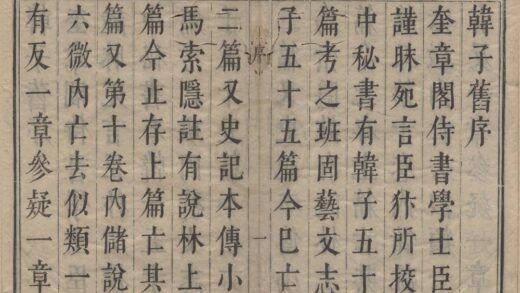 韓子舊序
奎章閣侍書學士臣
謹昧死言臣犿所挍
中秘書有韓子五十
篇考之班固藝文志
子五十五篇今已亡
序
一
二篇又史記本傳小
馬索隱註有說林上
篇今止存上篇亡其
篇又第十卷內儲說
六微內亡去似類一
有反一章參疑一章